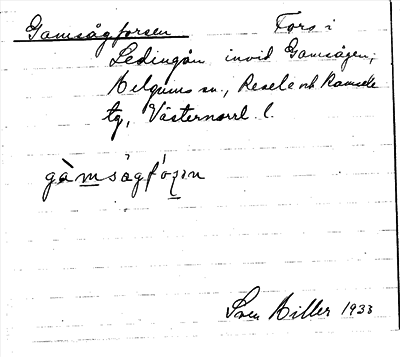 Gamsågforsen Fors i
Ledingån invid Gamsågen,
Helgums sn., Resele och Ramsele
tg, Västernorrl. l.
gàmságfóʐɪn
Sven Hiller 1933